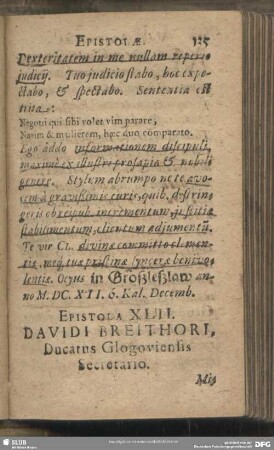 EPISTOLÆ. 125
Dexteritatem in me nullam reperio
judicij. Tuo judicio stabo, hoc expe-
ctabo, & spectabo. Sententia est
trita:
Negotii qui sibi volet vim parare,
Navim & mulierem, hæc duo comparato.
Ego addo informationem discipuli,
maximè ex illustri prosapia & nobili
genere. Stylum abrumpo ne te avo-
cem à gravissimis curis, quib. distrin-
geris ob reipub. incrementum, justitiæ
stabilimentum, clientum adjumentū.
Te vir Cl. divinæ committo clemen-
tiæ, meq; tuæ pristinæ synceræ benivo-
lentiæ. Ocyus in Großleßlaw an-
no M. DC. XII. 6. Kal. Decemb.
EPISTOLA XLIII.
DAVIDI BREITHORI,
Ducatus Glogoviensis
Secretario.
Mis
SLUB
DFG